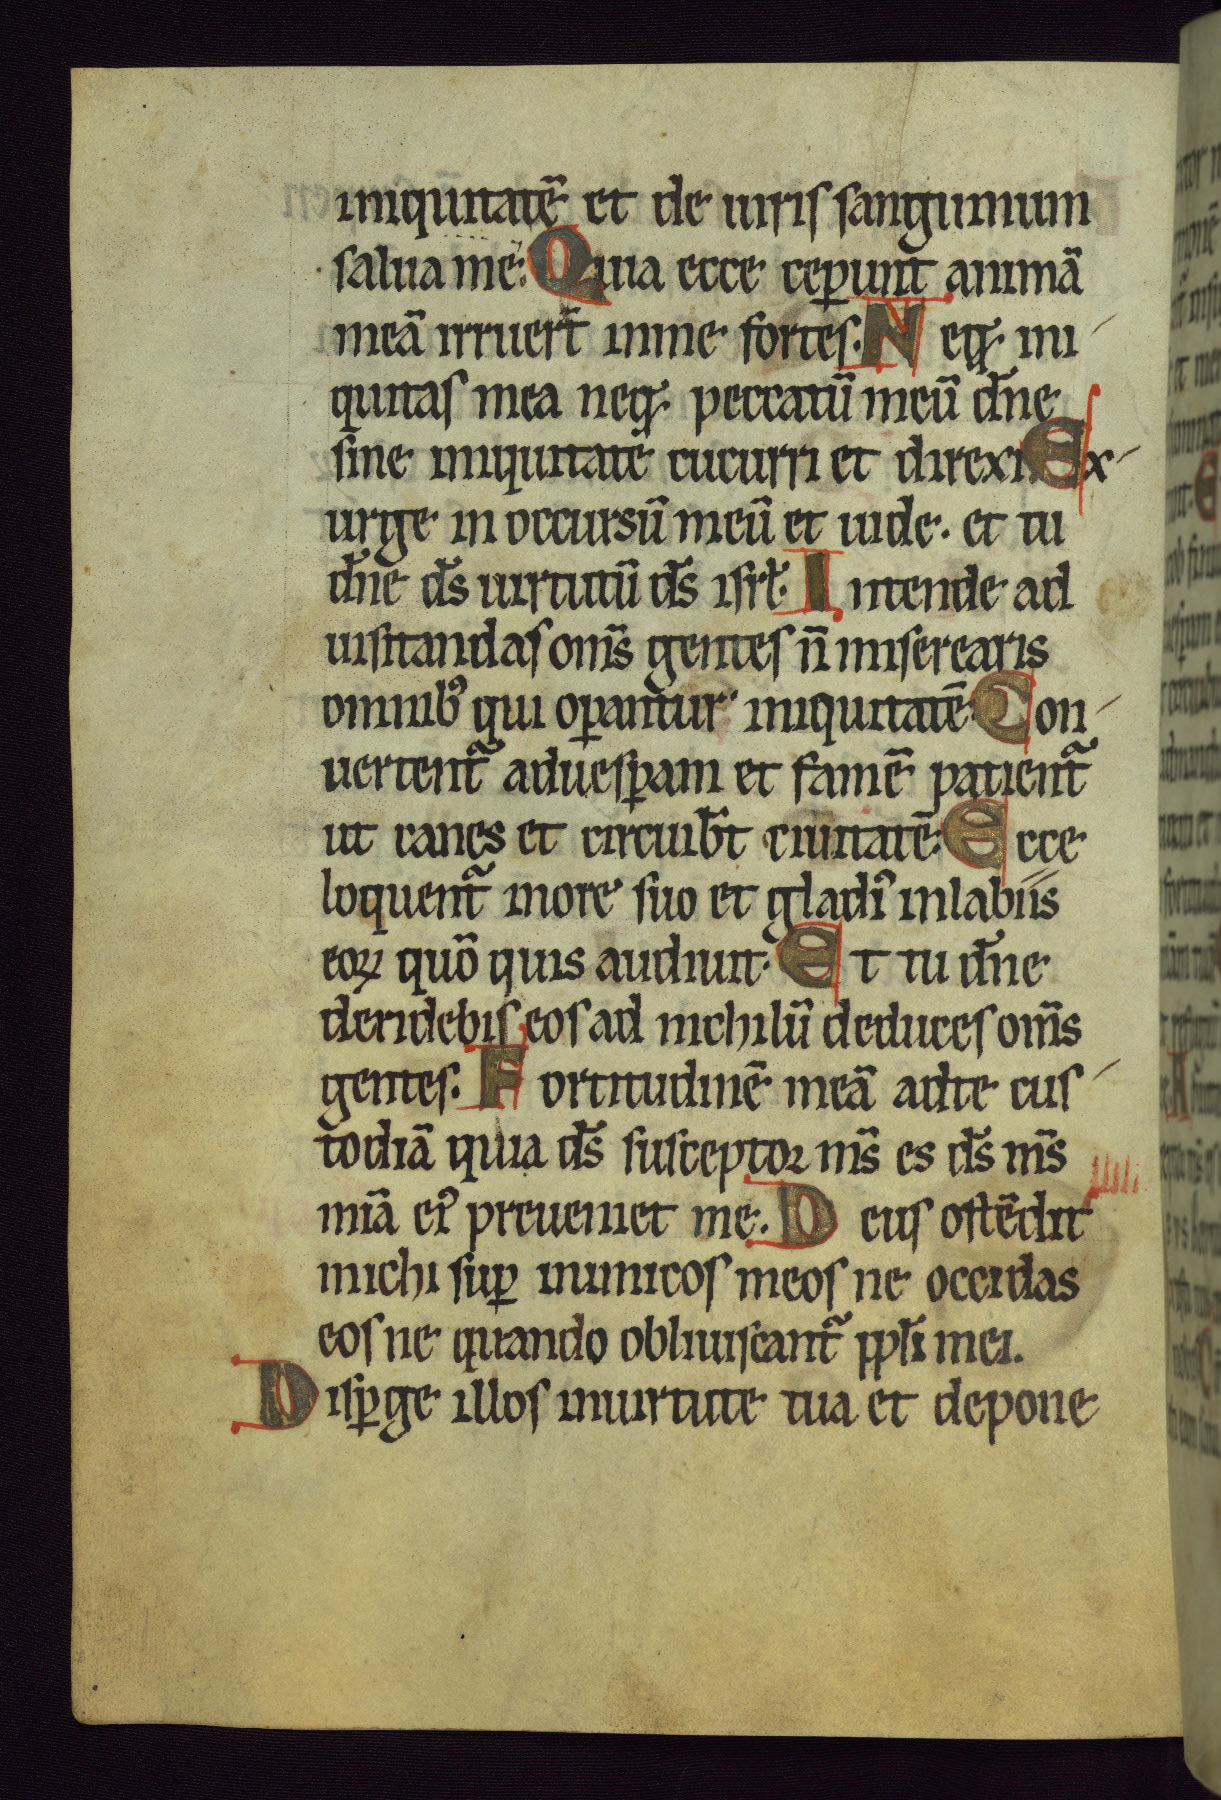 iniquitatē et de uiris sanguinum
salua me. Quia ecce cep̄unt animā
meā irruert̄ inme fortes. Neq; ini
quitas mea neq; peccatū meū dn̄e
sine iniquitate cucurri et direxi. Ex
urge in occursū meū et uide. et tu
dn̄e ds̄ uirtutū ds̄ isrl̄. Intende ad
uisitandas om̄s gentes n̄ miserearis
omnibꝰ qui op̄antur iniquitatē. Con
uertent᷑ aduesp̄am et famē patient᷑
ut canes et circuib̄t ciuitatē. Ecce
loquent᷑ more suo et gladiꝰ inlabiis
eoꝝ quō quis audiuit. Et tu dn̄e
deridebis eos ad nichilū deduces om̄s
gentes. Fortitudinē meā adte cus
todiā quia ds̄ susceptoꝛ ms̄ es ds̄ ms̄
mīa eiꝰ preueniet me. Deus ostēdit
michi sup̄ inimicos meos ne occidas
eos ne quando obliuiscant᷑ ppl̄i mei.
Disp̄ge illos inuirtute tua et depone